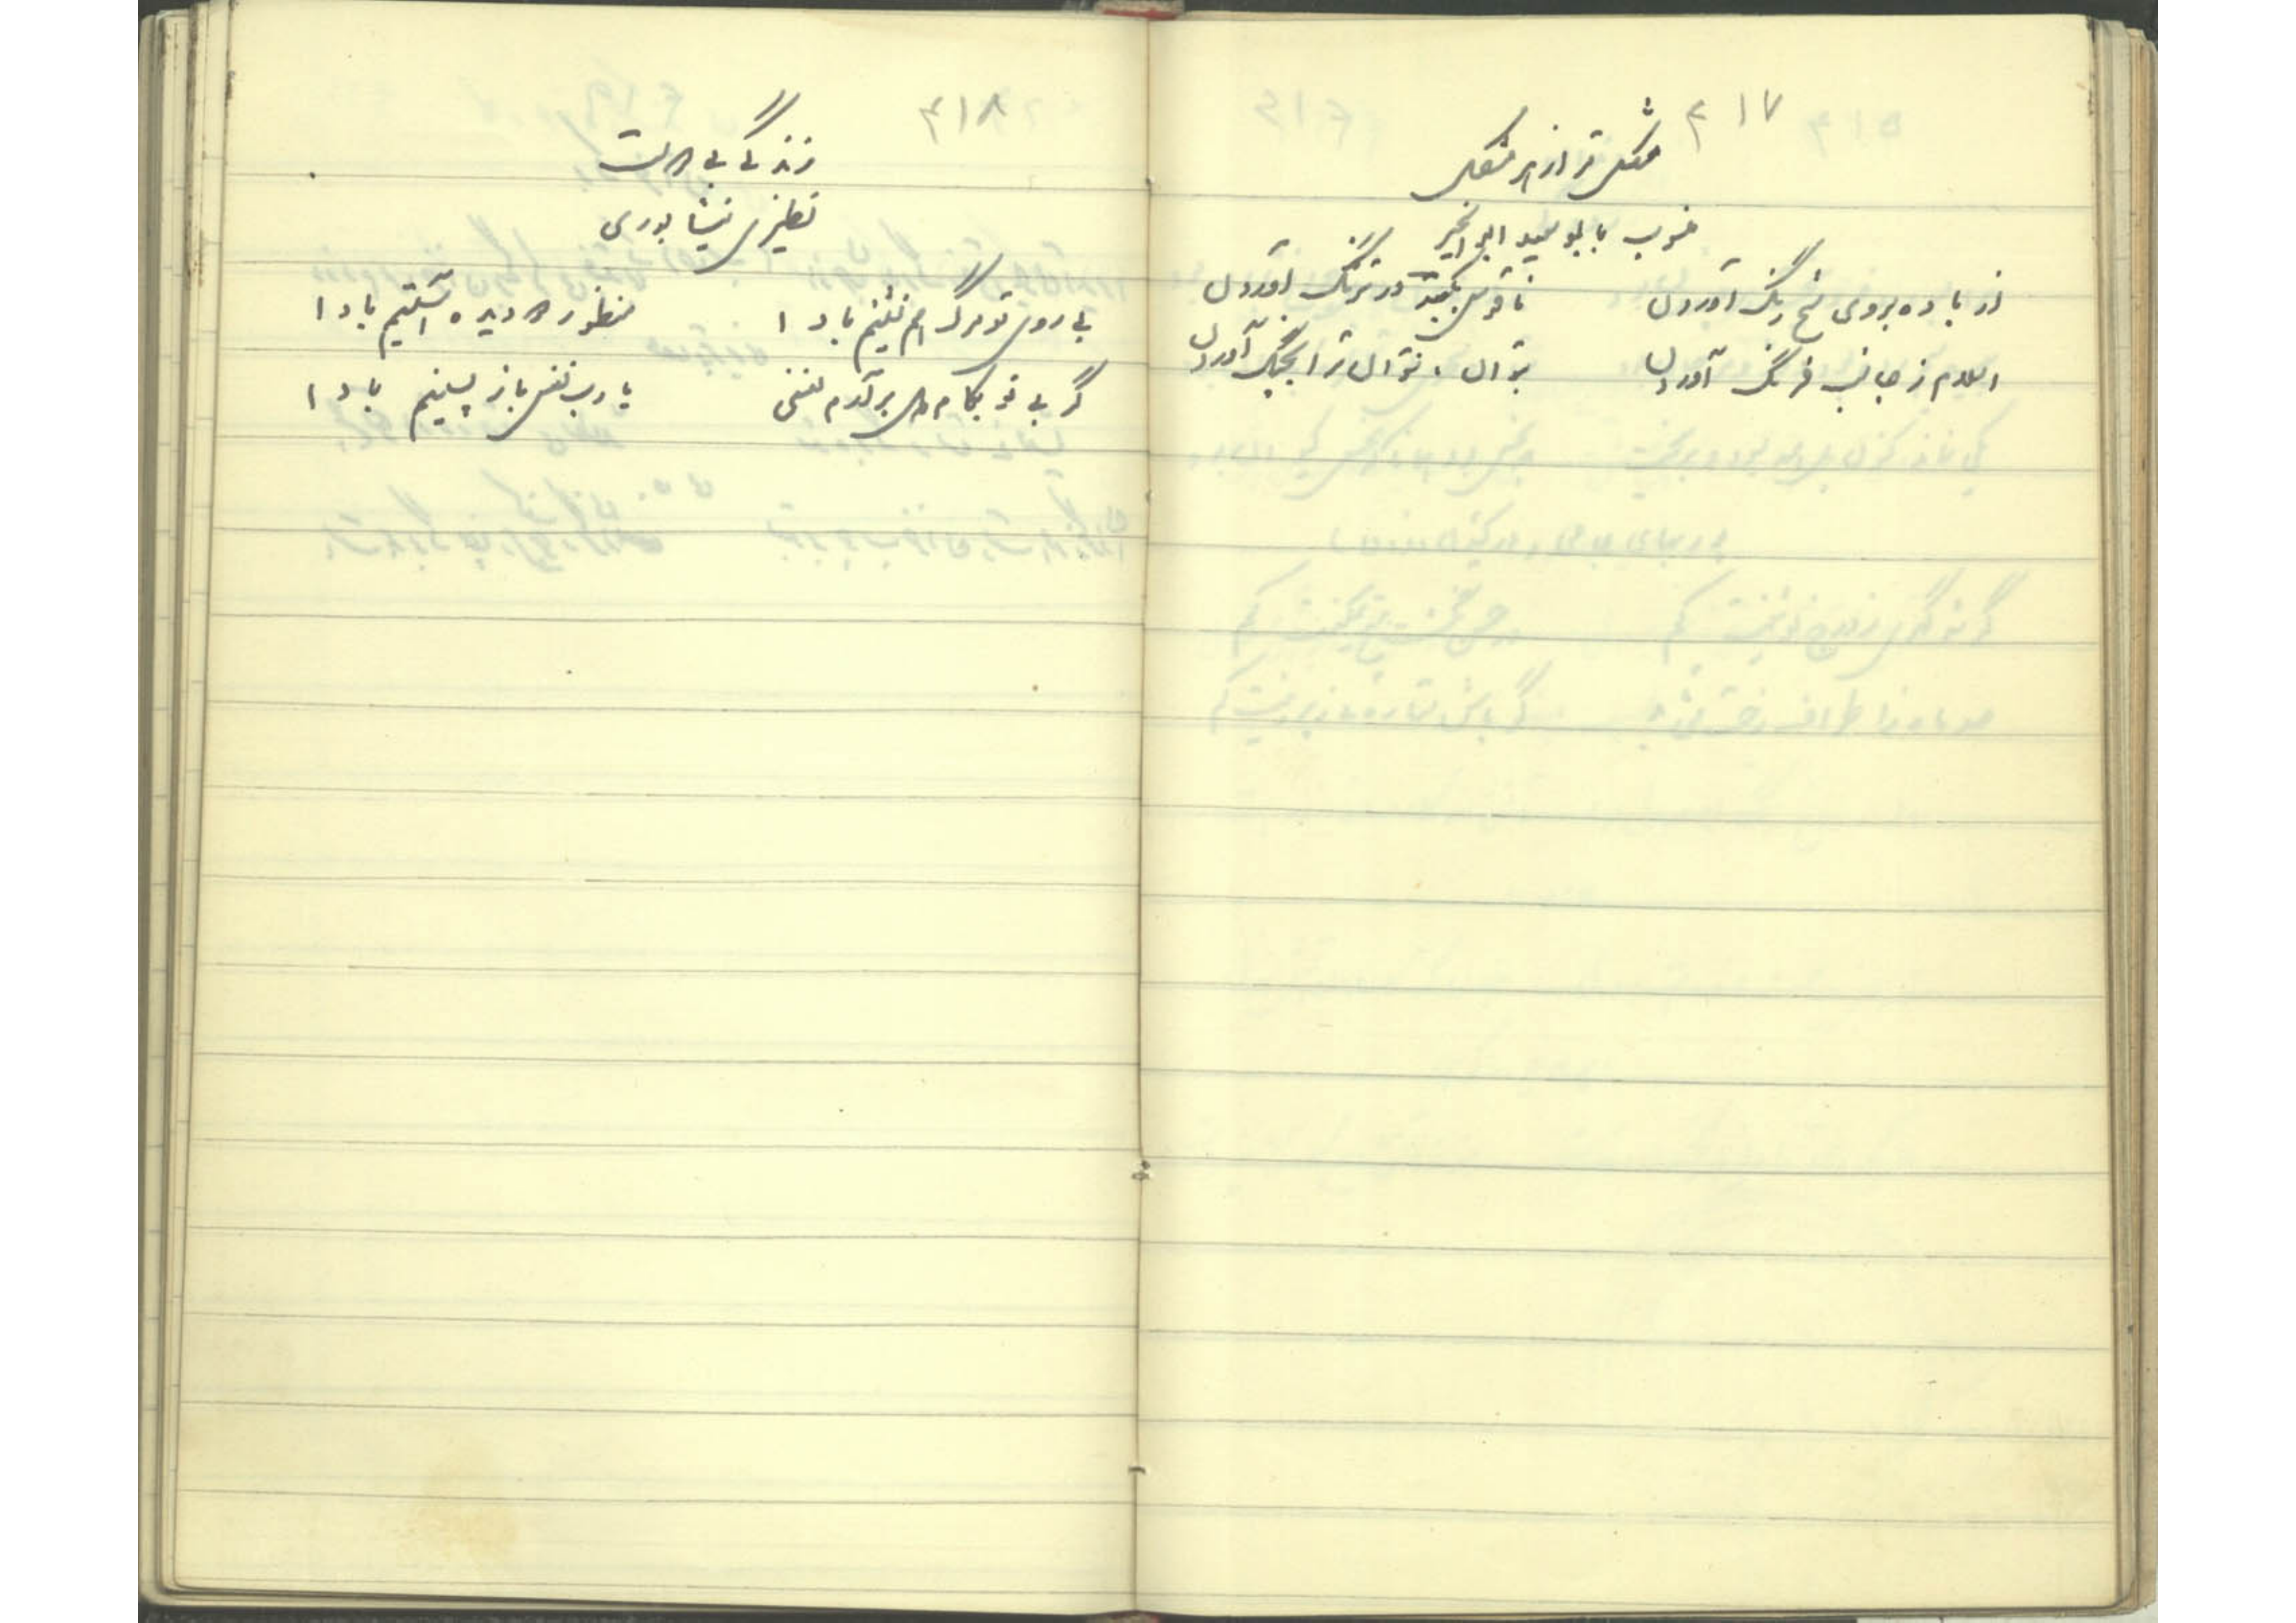 ۴۱۷
مشکل تر از هر مشکل
منسوب بابوسعید ابوالخیر
از باده بروی شیخ رنگ آوردن
ناقوس بکعبه در ترنگ آوردن
اسلام ز جانب فرنگ آوردن
بتوان، نتوان ترا بچنگ آوردن
۴۱۸
زندگی بی دوست
نظیری نیشابوری
بی روی تو مرگ هم نشینم بادا
منظور دو دیده آستینم بادا
گر بی تو بکام دل برآرم نفسی
یا رب نفس باز پسینم بادا